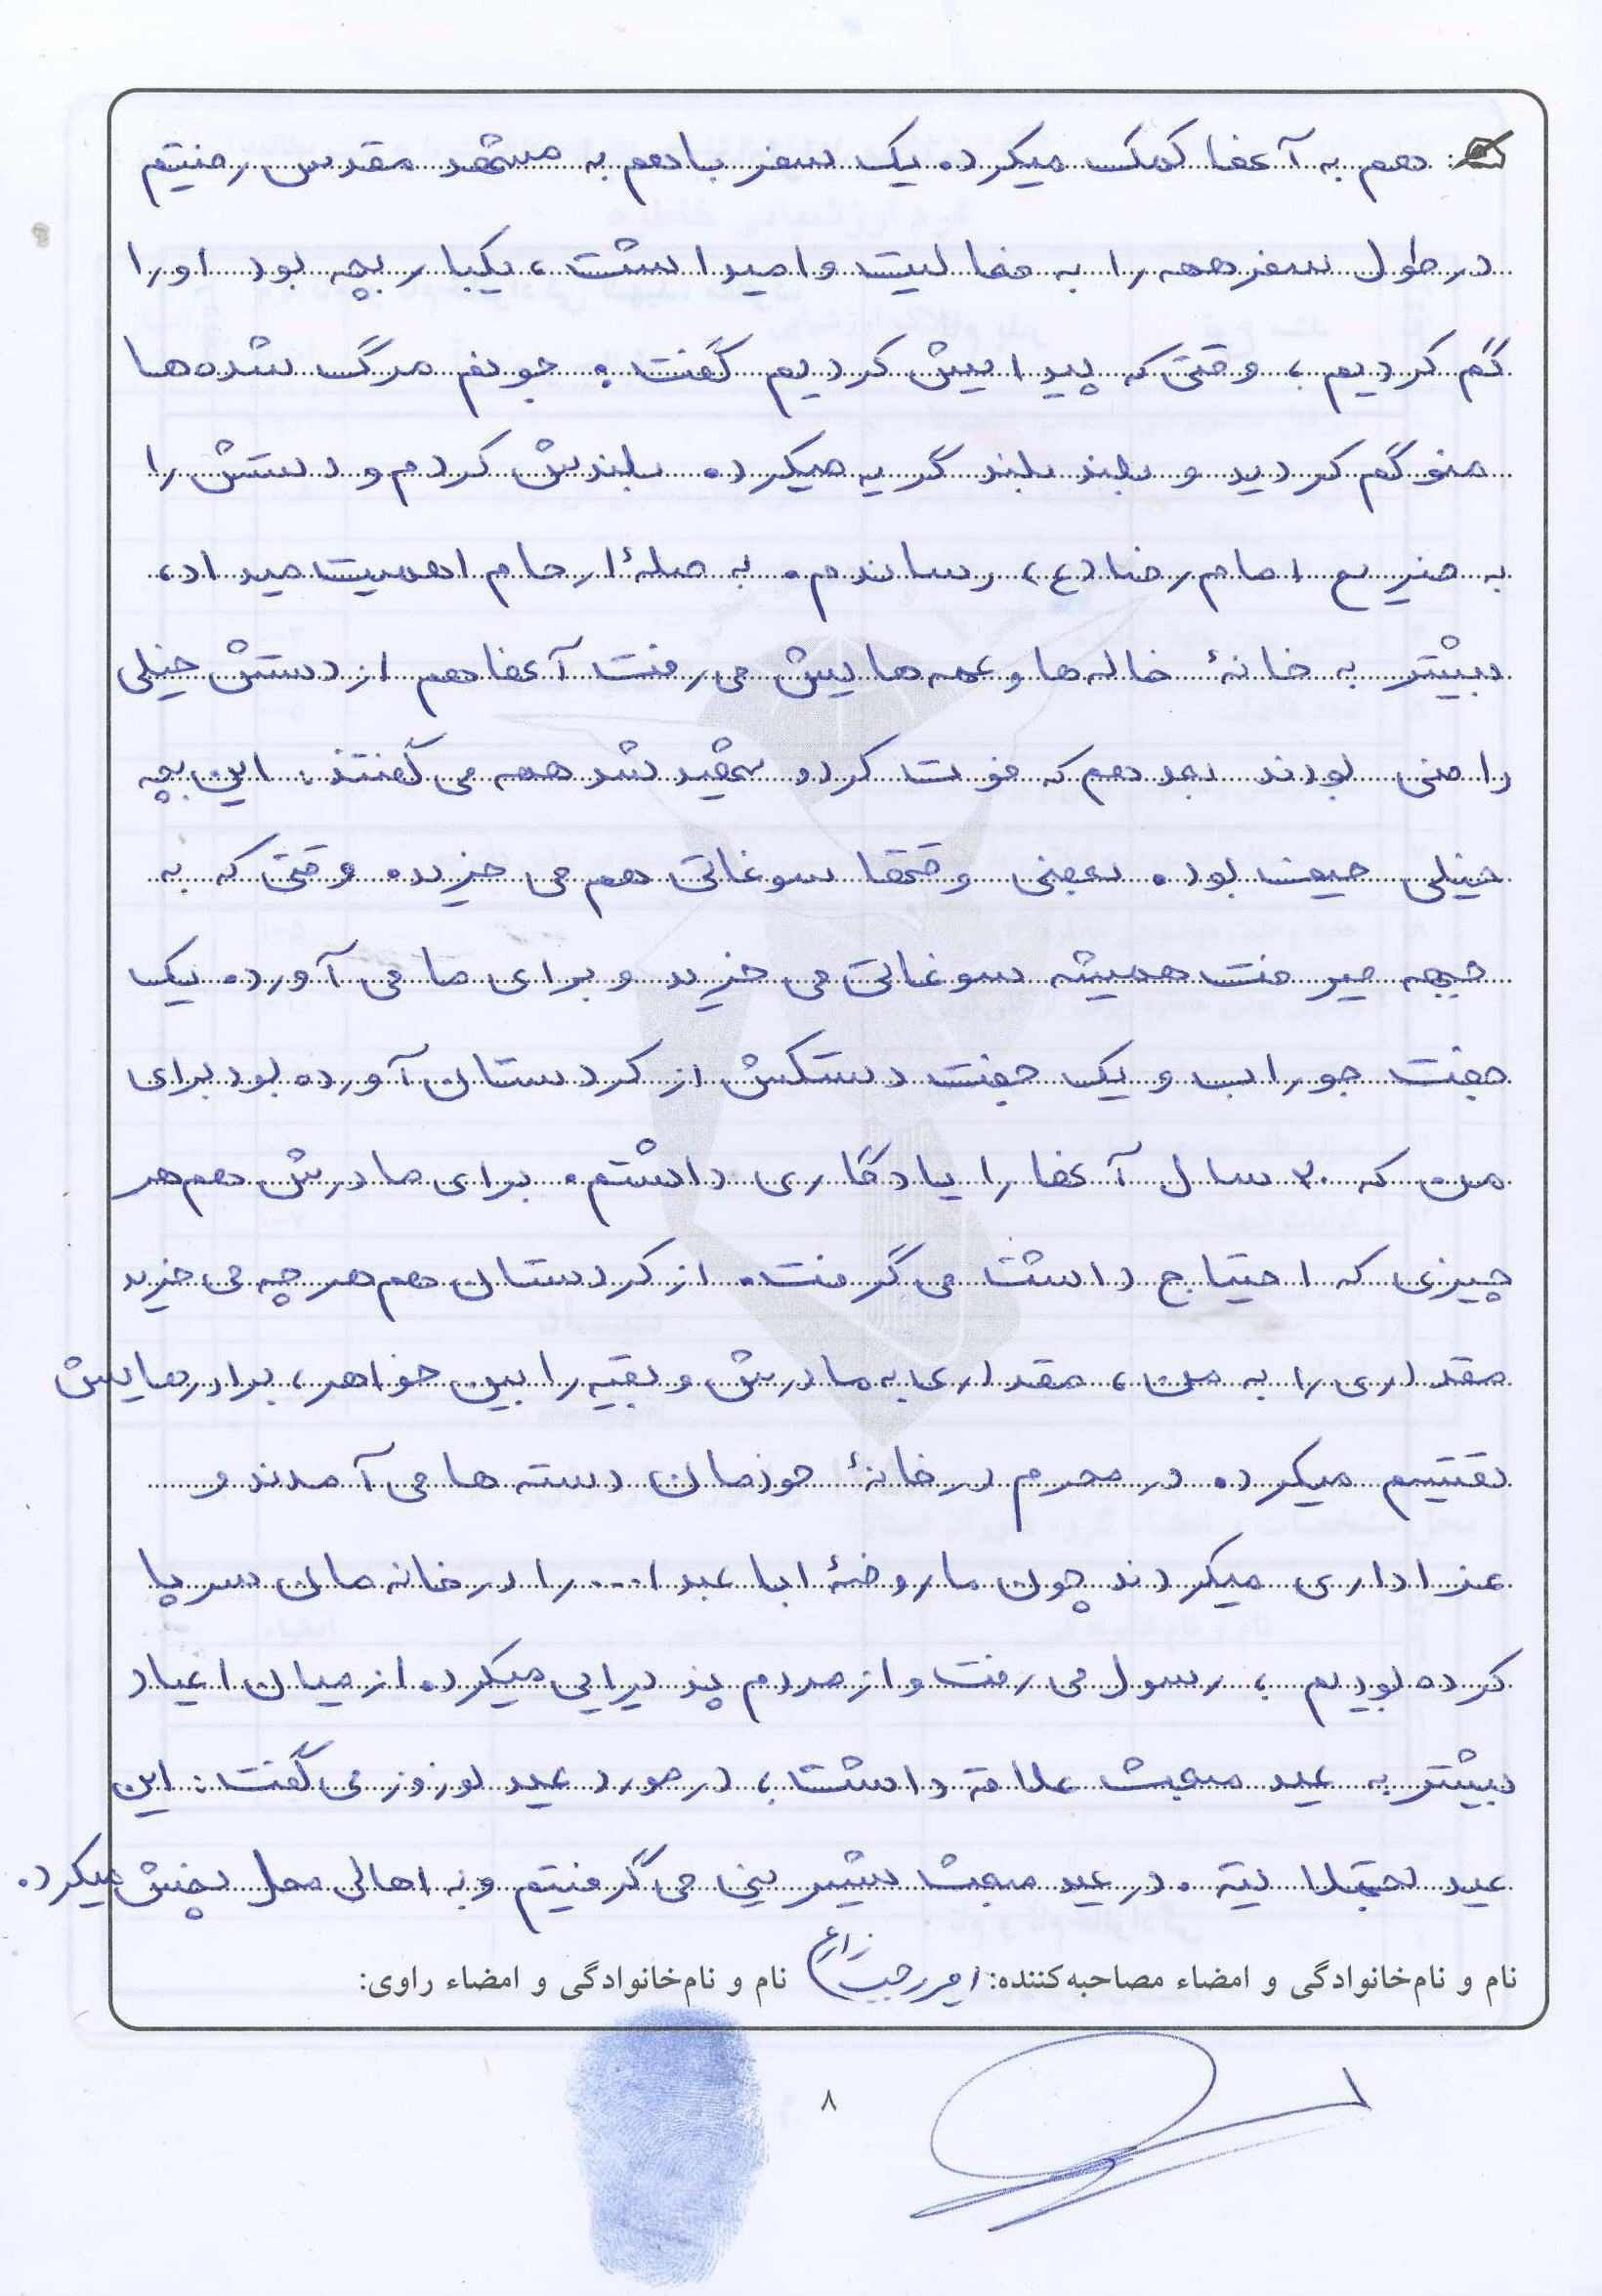 هم به آنها کمک میکرد. یک سفر با هم به مشهد مقدس رفتیم
در طول سفر همه را به فعالیت وا میداشت، یکبار بچه بود او را
گم کردیم؛ وقتی که پیدایش کردیم گفت: جونم مرگ شده‌ها
منو گم کردید و بلند بلند گریه میکرد. بلندش کردم و دستش را
به ضریح امام رضا (ع) رساندم. به صلهٔ ارحام اهمیت میداد،
بیشتر به خانهٔ خاله‌ها و عمه‌هایش می‌رفت آنها هم از دستش خیلی
راضی بودند بعد هم که فوت کرد و شهید شد همه می‌گفتند: این بچه
خیلی حیف بود. بعضی وقتها سوغاتی هم می‌خرید. وقتی که به
جبهه میرفت همیشه سوغاتی می‌خرید و برای ما می‌آورد. یک
جفت جوراب و یک جفت دستکش از کردستان آورده بود برای
من که ۳۰ سال آنها را یادگاری داشتم. برای مادرش هم هر
چیزی که احتیاج داشت می‌گرفت. از کردستان هم هر چه می‌خرید
مقداری را به من، مقداری به مادرش و بقیه را بین خواهر، برادرهایش
تقسیم میکرد. در محرم در خانهٔ خودمان دسته‌ها می‌آمدند و
عزاداری میکردند چون ما روضهٔ ابا عبدا... را در خانه‌مان سر پا
کرده بودیم؛ رسول می‌رفت و از مردم پذیرایی میکرد. از میان اعیاد
بیشتر به عید مبعث علاقه داشت؛ در مورد عید نوروز می‌گفت: این
عید تجملاتیه. در عید مبعث شیرینی می‌گرفتیم و به اهالی محل پخش میکرد.
نام و نام‌خانوادگی و امضاء مصاحبه‌کننده: نام و نام‌خانوادگی و امضاء راوی:
۸